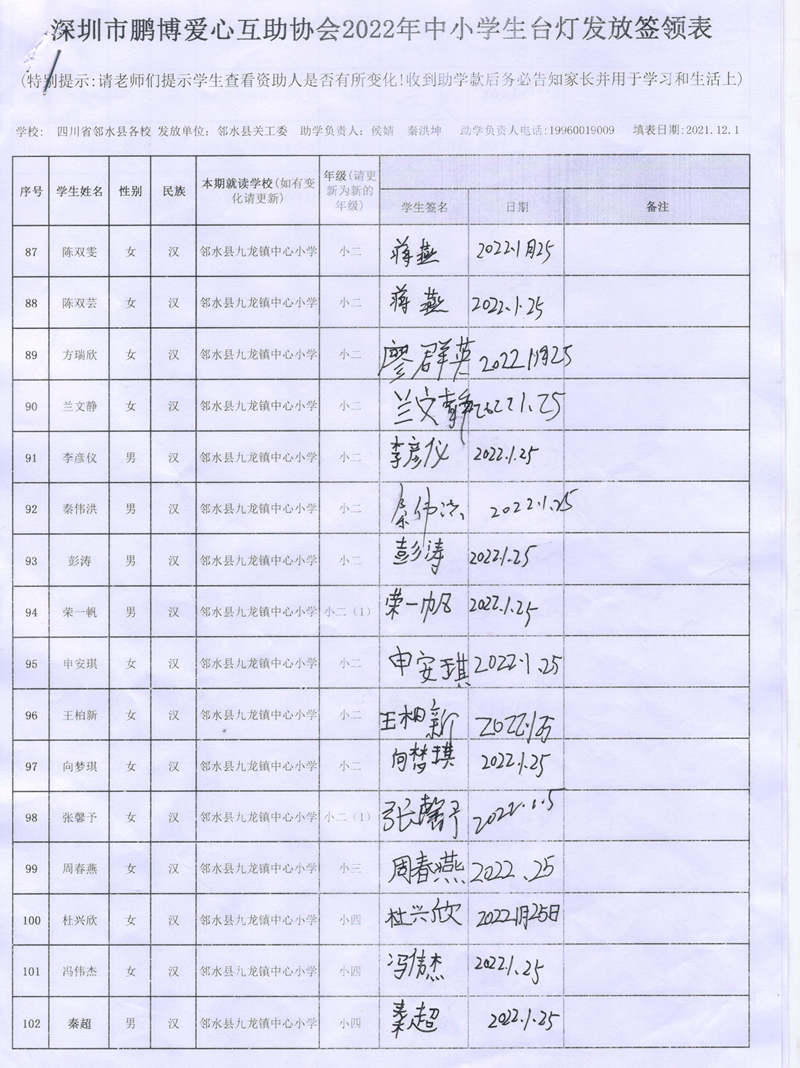 深圳市鹏博爱心互助协会2022年中小学生台灯发放签领表
(特别提示:请老师们提示学生查看资助人是否有所变化!收到助学款后务必告知家长并用于学习和生活上)
学校: 四川省邻水县各校 发放单位: 邻水县关工委 助学负责人: 侯婧 秦洪坤 助学负责人电话:19960019009 填表日期:2021.12.1
序号 学生姓名 性别 民族 本期就读学校(如有变化请更新) 年级(请更新为新的年级) 学生签名 日期 备注
87 陈双雯 女 汉 邻水县九龙镇中心小学 小二 蒋燕 2022.1月25
88 陈双芸 女 汉 邻水县九龙镇中心小学 小二 蒋燕 2022.1.25
89 方瑞欣 女 汉 邻水县九龙镇中心小学 小二 廖群英 2022.1月25
90 兰文静 女 汉 邻水县九龙镇中心小学 小二 兰文静 2022.1.25
91 李彦仪 男 汉 邻水县九龙镇中心小学 小二 李彦仪 2022.1.25
92 秦伟洪 男 汉 邻水县九龙镇中心小学 小二 秦伟洪 2022.1.25
93 彭涛 男 汉 邻水县九龙镇中心小学 小二 彭涛 2022.1.25
94 荣一帆 男 汉 邻水县九龙镇中心小学 小二(1) 荣一帆 2022.1.25
95 申安琪 女 汉 邻水县九龙镇中心小学 小二 申安琪 2022.1.25
96 王柏新 女 汉 邻水县九龙镇中心小学 小二 王柏新
97 向梦琪 女 汉 邻水县九龙镇中心小学 小二 向梦琪 2022.1.25
98 张馨予 女 汉 邻水县九龙镇中心小学 小二(1) 张馨予
99 周春燕 女 汉 邻水县九龙镇中心小学 小三 周春燕 2022.25
100 杜兴欣 女 汉 邻水县九龙镇中心小学 小四 杜兴欣 2022.1月25日
101 冯伟杰 女 汉 邻水县九龙镇中心小学 小四 冯伟杰 2022.1.25
102 秦超 男 汉 邻水县九龙镇中心小学 小四 秦超 2022.1.25